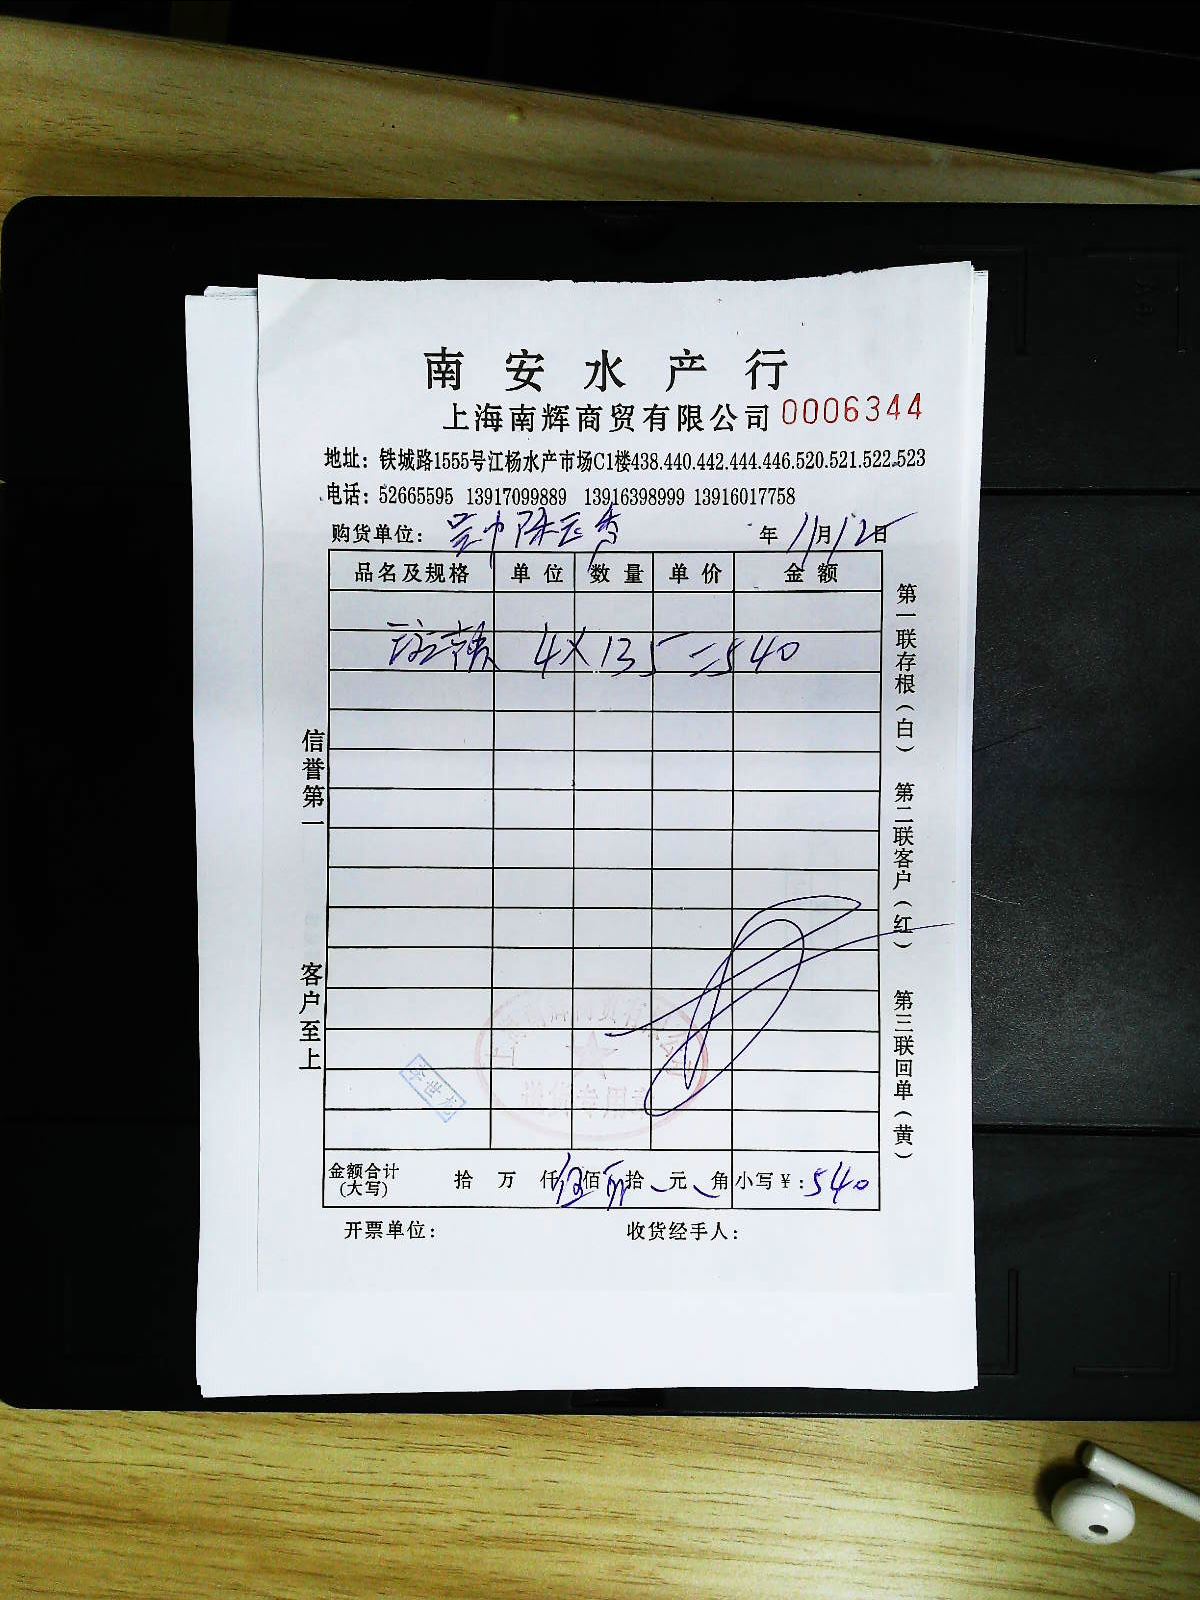 南安水产行
上海南辉商贸有限公司 0006344
地址：铁城路1555号江杨水产市场C1楼438.440.442.444.446.520.521.522.523
电话：52665595 13917099889 13916398999 13916017758
购货单位：
年 11月12日
品名及规格 单位 数量 单价 金额
4×135=540
信誉第一 客户至上
第一联存根（白） 第二联客户（红） 第三联回单（黄）
送货专用章
李世龙
金额合计（大写） 拾 万 仟 伍佰 肆拾 元 角 小写￥：540
开票单位： 收货经手人：